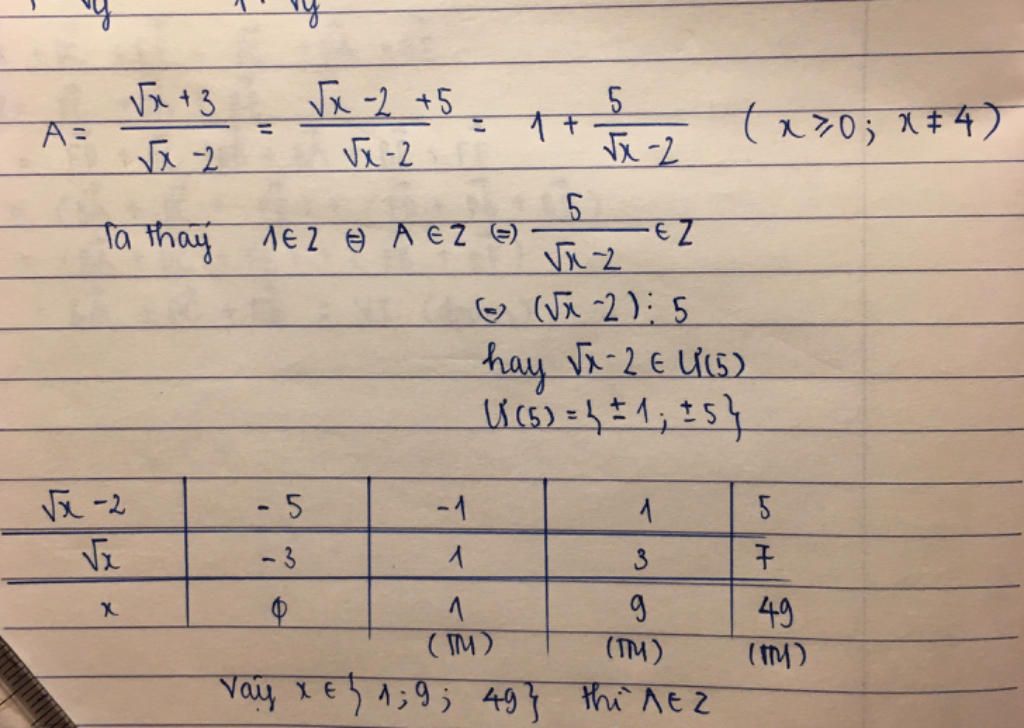 A = (√x + 3)/(√x - 2) = (√x - 2 + 5)/(√x - 2) = 1 + 5/(√x - 2) (x ⩾ 0; x ≠ 4)
Ta thấy 1 ∈ Z ⇔ A ∈ Z ⇔ 5/(√x - 2) ∈ Z
⇔ (√x - 2) ⋮ 5
hay √x - 2 ∈ Ư(5)
Ư(5) = { ±1; ±5 }
√x - 2 | -5 | -1 | 1 | 5
√x | -3 | 1 | 3 | 7
x | ϕ | 1 | 9 | 49
(TM) (TM) (TM)
Vậy x ∈ { 1; 9; 49 } thì A ∈ Z